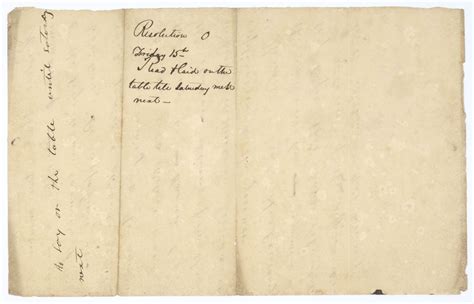 Resolution O
Friday 15th
read & laid on the
table till Saturday
next —
to lay on the table until Saturday
next